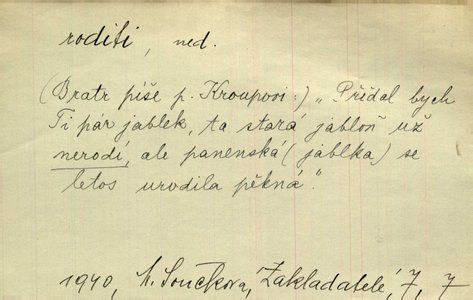 roditi, ned.
(Bratr píše p. Kroupovi:) „Přidal bych
Ti pár jablek, ta stará jabloň už
nerodí, ale panenská (jablka) se
letos urodila pěkná“.
1940, M. Součková, Zakladatelé, 7, 7